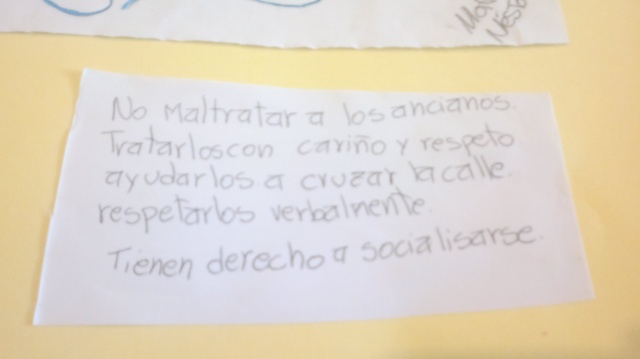 No Maltratar a los ancianos.
Tratarloscon cariño y respeto
ayudarlos a cruzar la calle.
respetarlos verbalnente.
Tienen derecho a socialisarse.